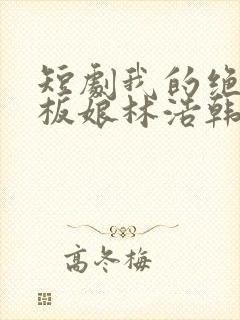 短劇我的绝
板娘林浩韩
高冬梅